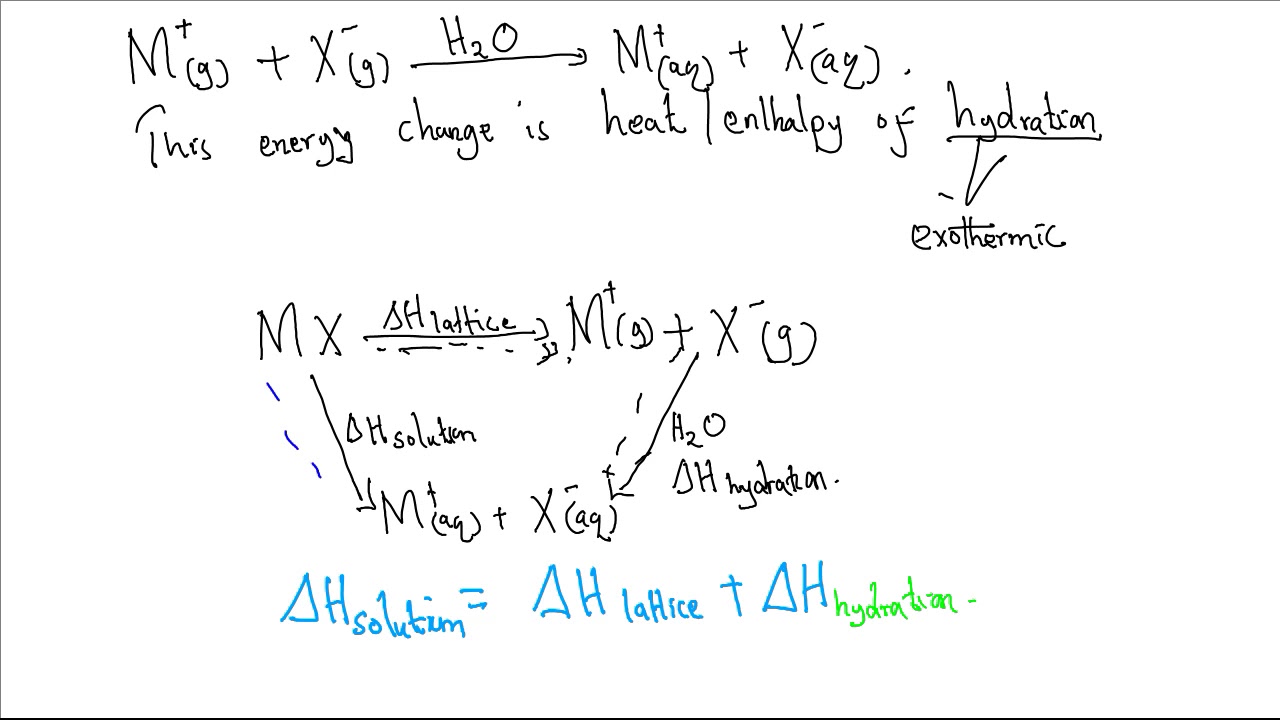 M⁺(g) + X⁻(g) H₂O → M⁺(aq) + X⁻(aq).
This energy change is heat/enthalpy of hydration
exothermic
MX ΔH lattice → M⁺(g) + X⁻(g)
ΔH solution
H₂O
ΔH hydration.
M⁺(aq) + X⁻(aq)
ΔH solution = ΔH lattice + ΔH hydration.